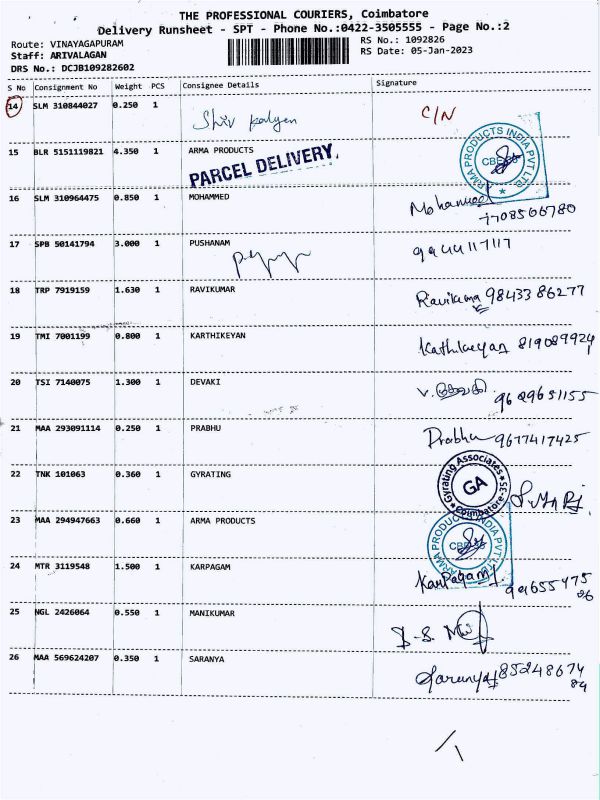 THE PROFESSIONAL COURIERS, Coimbatore
Delivery Runsheet - SPT - Phone No.:0422-3505555 - Page No.:2
Route: VINAYAGAPURAM
Staff: ARIVALAGAN
DRS No.: DCJB109282602
RS No.: 1092826
RS Date: 05-Jan-2023
S No Consignment No Weight PCS Consignee Details Signature
14 SLM 310844027 0.250 1 Shiv Kalyen C/N
15 BLR 5151119821 4.350 1 ARMA PRODUCTS
PARCEL DELIVERY.
ARMA PRODUCTS INDIA PVT LTD
16 SLM 310964475 0.850 1 MOHAMMED Mohammed
7708566780
17 SPB 50141794 3.000 1 PUSHANAM 9944117117
18 TRP 7919159 1.630 1 RAVIKUMAR Ravikumar 9843386277
19 TMI 7001199 0.800 1 KARTHIKEYAN Kathikeyan 819089924
20 TSI 7140075 1.300 1 DEVAKI 9629651155
21 MAA 293091114 0.250 1 PRABHU Prabhu 9677417425
22 TNK 101063 0.360 1 GYRATING
Gyrating Associates
GA
Coimbatore-35
23 MAA 294947663 0.660 1 ARMA PRODUCTS
ARMA PRODUCTS INDIA PVT LTD
24 MTR 3119548 1.500 1 KARPAGAM Karpagam
25 NGL 2426064 0.550 1 MANIKUMAR
26 MAA 569624207 0.350 1 SARANYA Saranya 85248674
84